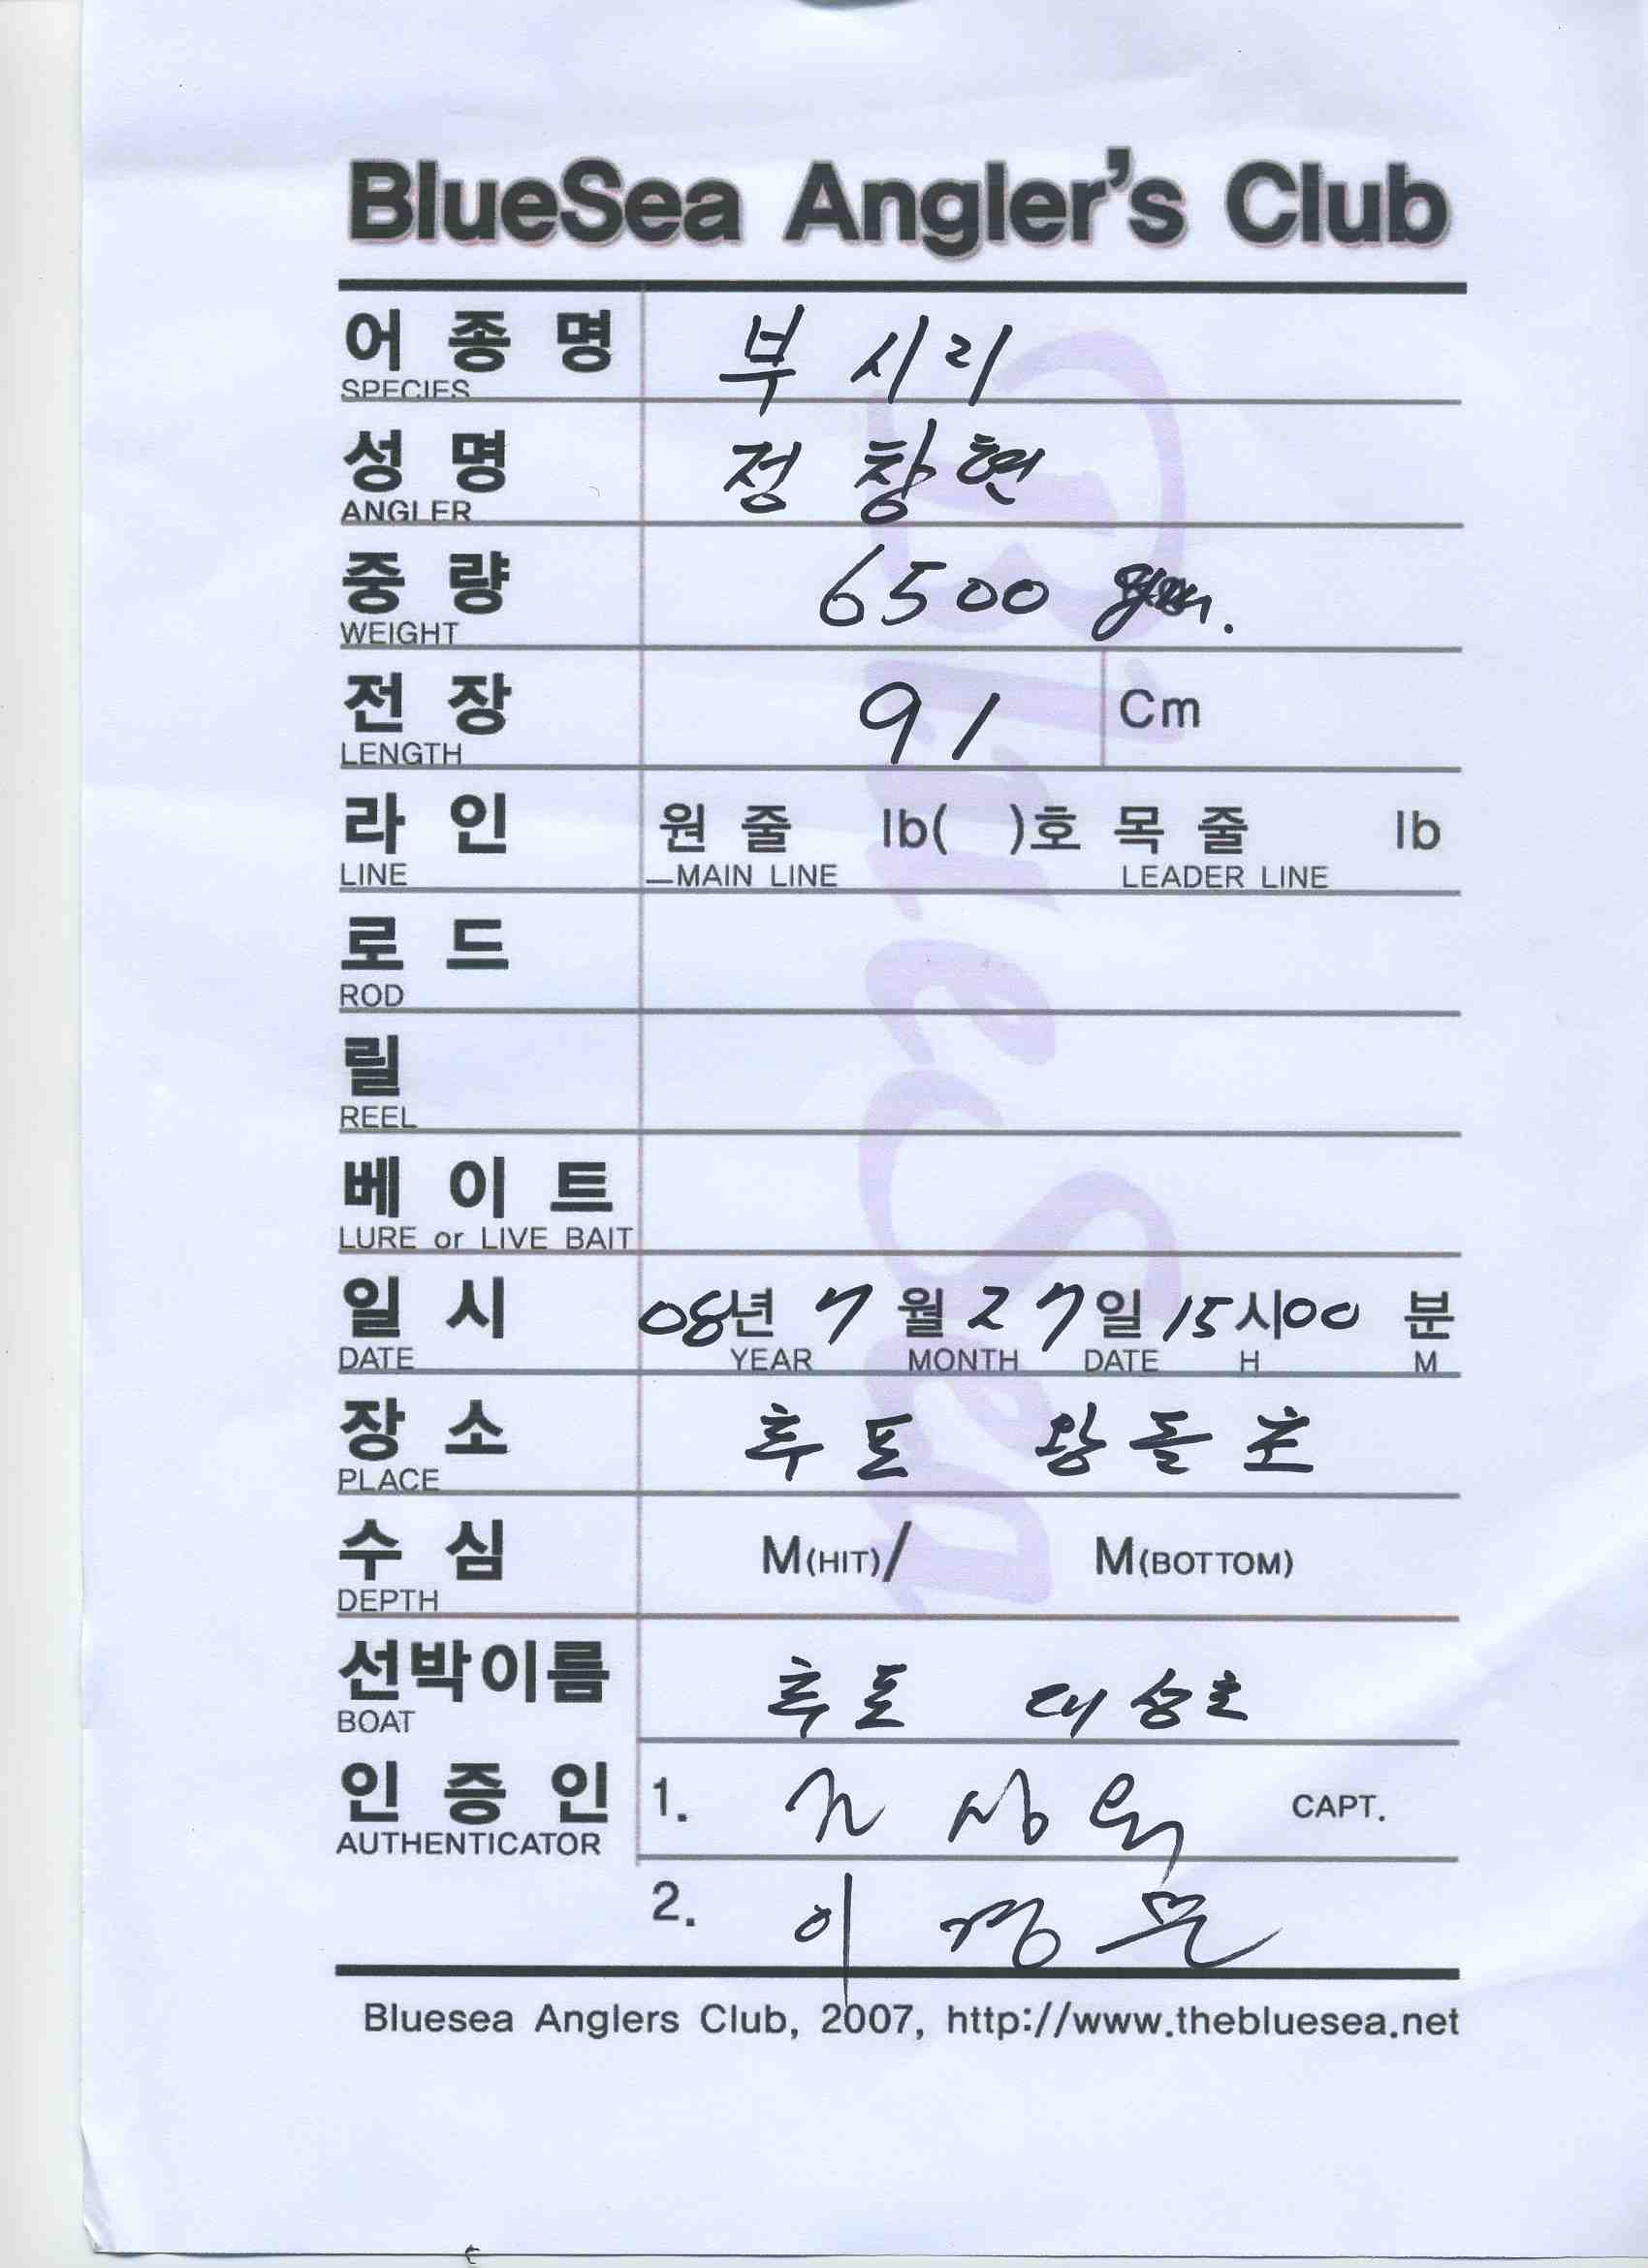 BlueSea Angler's Club
어 종 명 부 시 리
SPECIES
성 명 정 창 현
ANGLER
중 량 6500
WEIGHT
전 장 91 Cm
LENGTH
라 인 원 줄 lb( )호 목 줄 lb
LINE MAIN LINE LEADER LINE
로 드
ROD
릴
REEL
베 이 트
LURE or LIVE BAIT
일 시 08년 7 월 27 일 15 시 00 분
DATE YEAR MONTH DATE H M
장 소 후포 왕돌초
PLACE
수 심 M(HIT)/ M(BOTTOM)
DEPTH
선박이름 후포 대성호
BOAT
인 증 인 1. CAPT.
AUTHENTICATOR
2. 이
Bluesea Anglers Club, 2007, http://www.thebluesea.net
BlueSea